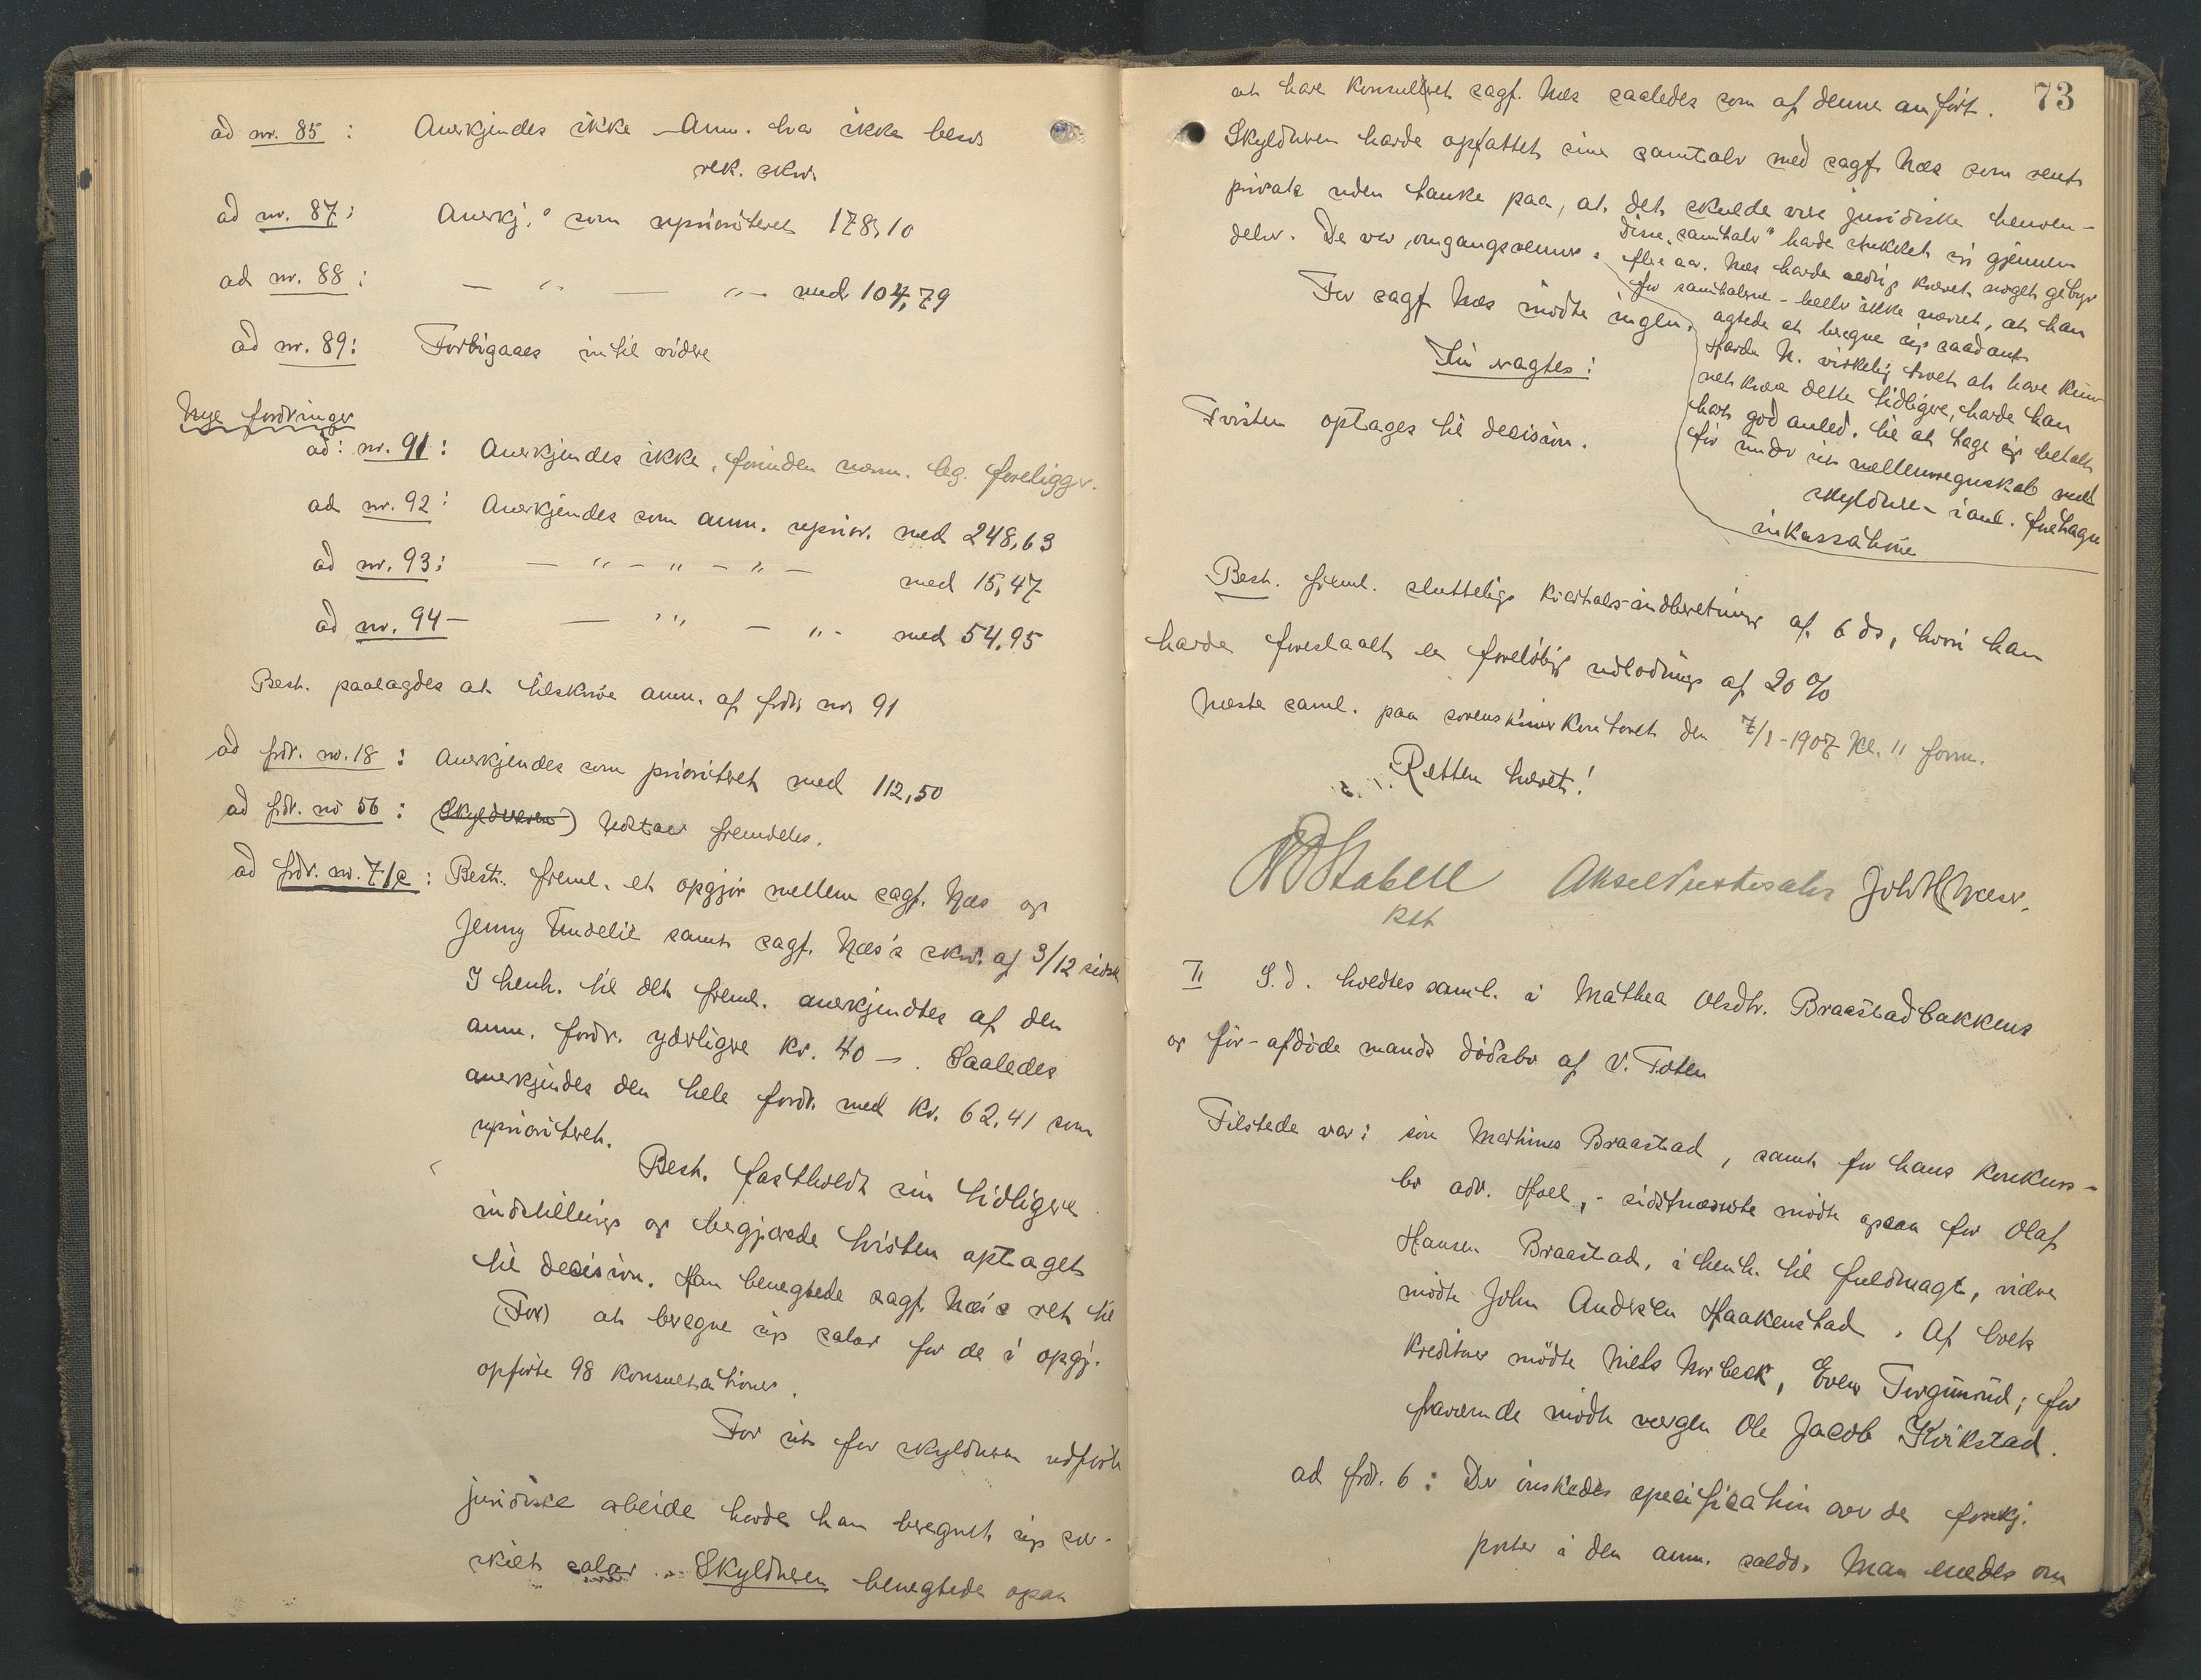 ad nr. 85 : Anerkjendes ikke – Anm. har ikke besv
rek. skr.
ad nr. 87 : Anerkj. som uprioriteret 178,10
ad nr. 88 : — " — " — med 104,79
ad nr. 89 : Forbigaaes intil videre
Nye fordringer
ad : nr. 91 : Anerkjendes ikke, forinden nærm. leg. foreligger.
ad nr. 92 : Anerkjendes som anm. uprior. med 248,63
ad nr. 93 : — " — " — " — med 15,47
ad nr. 94 — — " — " - med 54,95
Best. paalagdes at tilskrive anm. af fdr nr 91
ad fdr. nr. 18 : Anerkjendes som prioriteret med 112,50
ad fdr. no 56 : (Skyldneren) Udstaar fremdeles.
ad fdr. nr. 71a : Best. freml. et opgjør mellem sagf. Næs og
Jenny Tindelie samt sagf. Næs's skr. af 3/12 sidstl
I henh. til det freml. anerkjendtes af den
anm. fordr. yderligere kr. 40 –. Saaledes
anerkjendes den hele fordr. med kr. 62,41 som
uprioriteret.
Best. fastholdt sin tidligere
indstilling og begjærede tvisten optaget
til decision. Han benegtede sagf. Næs's ret til
(For) at beregne sig salær for de i opgj.
opførte 98 konsultationer.
For sit for skyldneren udførte
juridiske arbeide havde han beregnet sig sær-
skilt salær. – Skyldneren benegtede ogsaa
73
at have konsulteret sagf. Næs saaledes som af denne anført.
Skyldneren havde opfattet sine samtaler med sagf. Næs som rent
private uden tanke paa, at det skulde være juridiske henven-
delser. De var omgangsvenner.
Disse "samtaler" havde strukket sig gjennem
flere aar. Næs havde aldrig krævet noget gebyr
for samtalerne – heller ikke nævnt, at han
agtede at beregne sig saadant
Havde N. virkelig troet at have kun-
net kræve dette tidligere, havde han
havt god anled. til at tage sig betalt
før under sit mellemregnskab med
skyldneren i anl. foretagne
inkassationer
For sagf Næs mødte ingen.
Sin vagtes :
Tvisten optages til decision.
Best. freml. sluttelig kvartals-indberetning af 6 ds, hvori han
havde foreslaaet en foreløbig udlodning af 20 %
Næste saml. paa sorenskriverkontoret den 7/1 - 1907 kl. 11 form.
Retten hævet!
Stabell
Kst
Joh H Næser.
II S.d. holdtes saml. i Mathea Olsdtr. Braastadbakkens
og før-afdøde mands dødsbo af V. Toten
Tilstede var : søn Martinus Braastad, samt for hans konkurs-
bo adv. Hoel, – sidstnævnte mødte ogsaa for Olaf
Hansen Braastad, i henh. til fuldmagt, videre
mødte John Andersen Haakenstad. Af boets
kreditorer mødte Niels Norbeck, Even Turgunrud ; for
fraværende mødte vergen Ole Jacob Kvikstad.
ad fdr. 6 : Der ønskedes specifikation over de forskj.
poster i den anm. saldo. Man enedes om